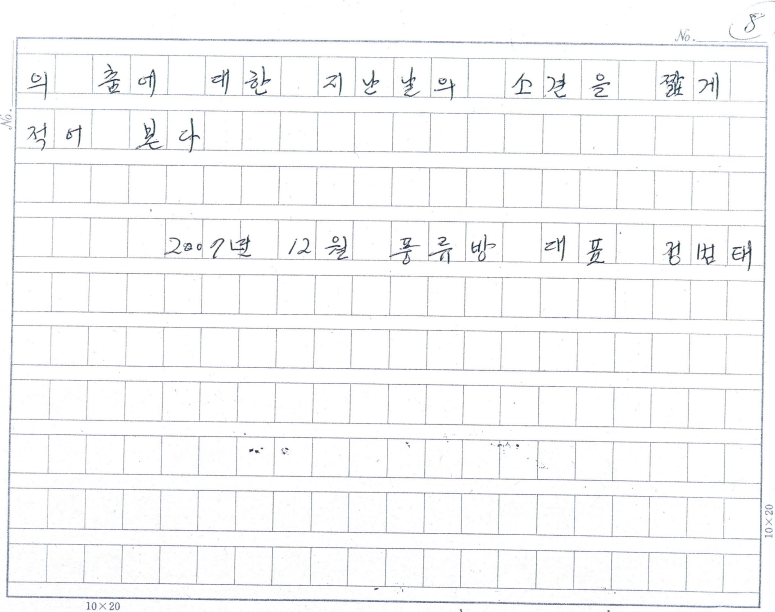 No. 8
의 춤에 대한 지난날의 소견을 짧게
No.
적어 본다
2007년 12월 풍류방 대표 정범태
10×20
10×20